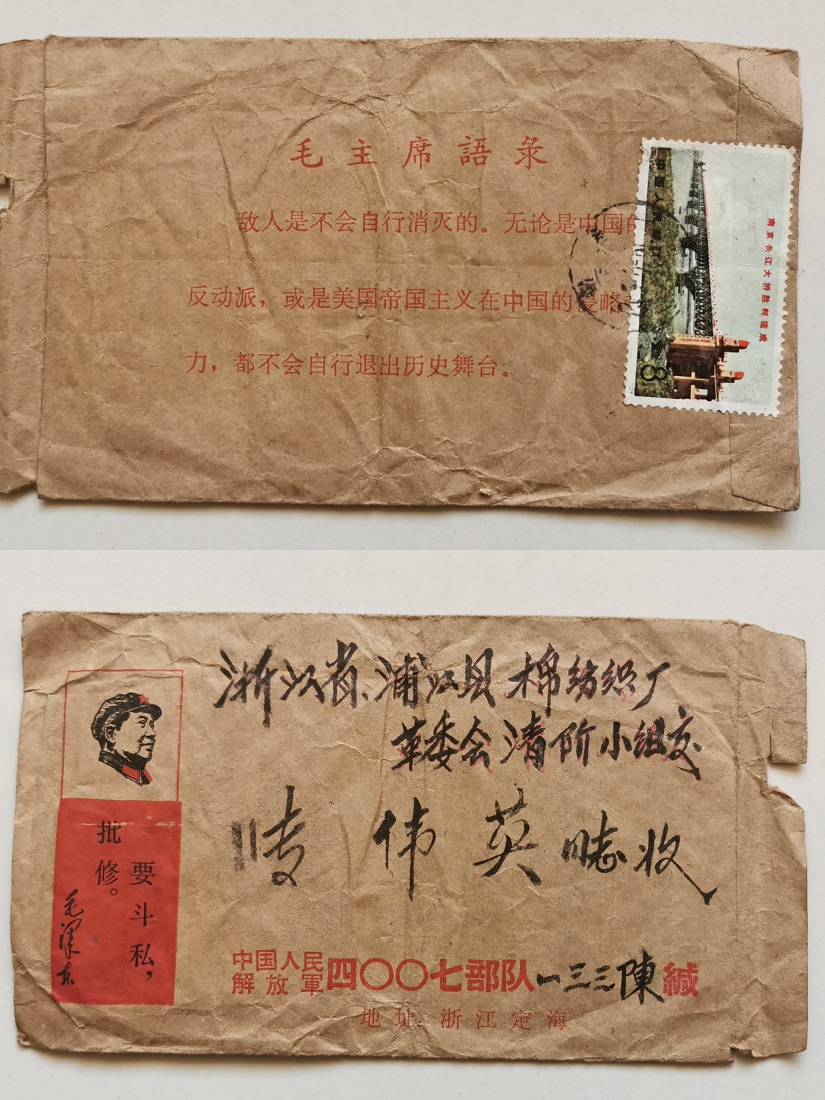 毛主席語录
敌人是不会自行消灭的。无论是中国的
反动派，或是美国帝国主义在中国的侵略势
力，都不会自行退出历史舞台。
南京长江大桥胜利建成
8
浙江省、浦江县棉纺织厂
革委会清阶小组交
伟英同志收
要斗私，
批修。
毛泽东
中国人民
解放軍
四〇〇七部队一三三陳缄
地址 浙江定海